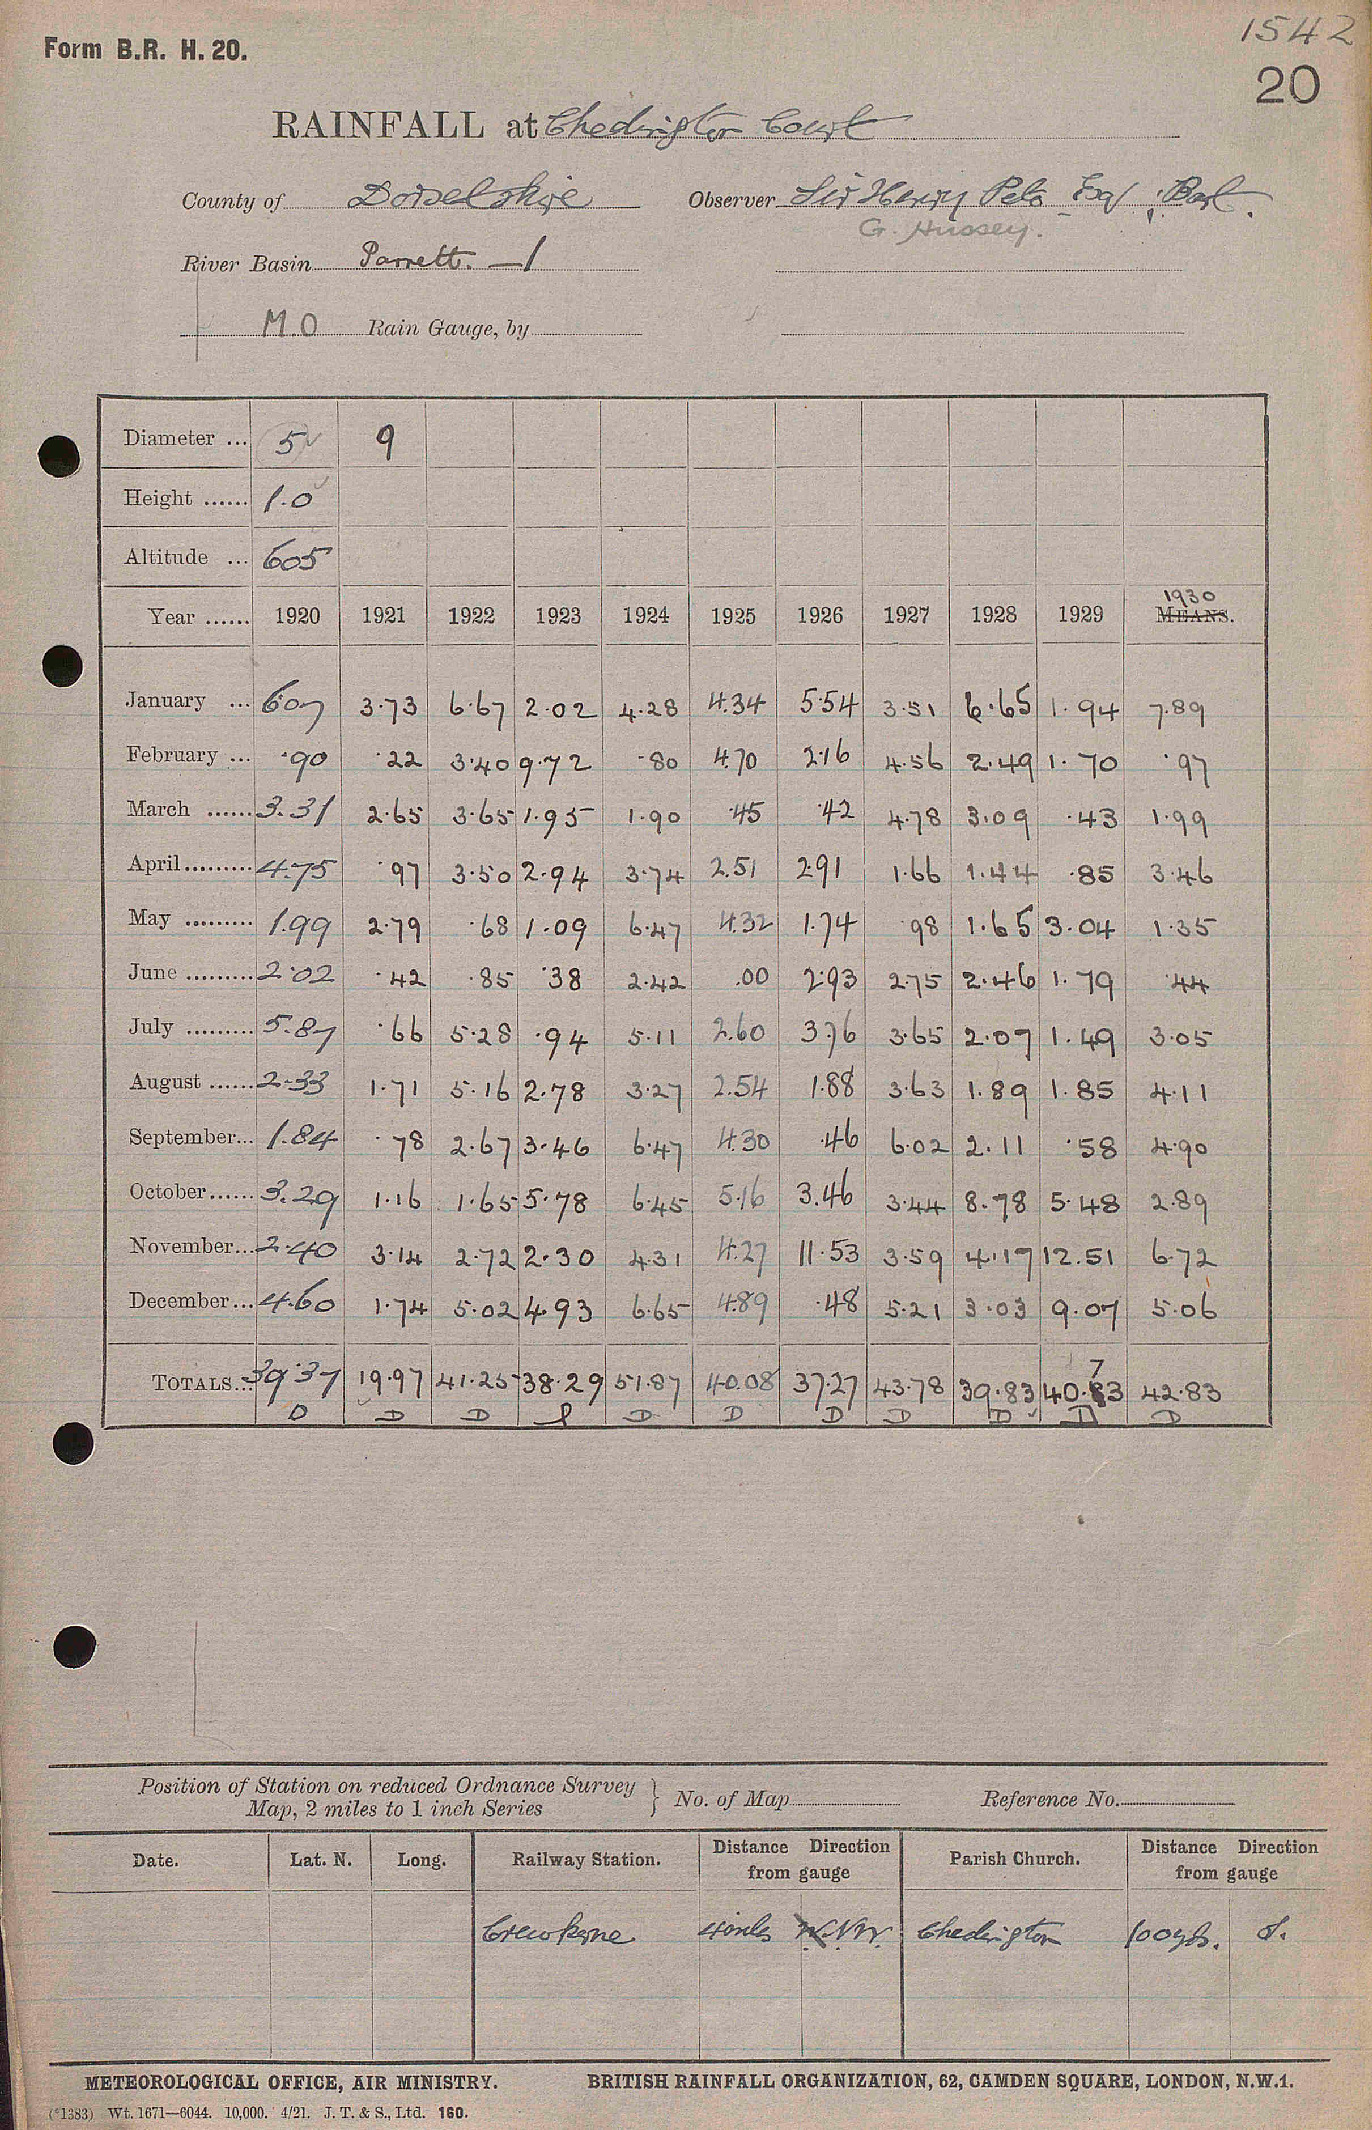 1542
Form B.R. H. 20.
20
RAINFALL at Chedington Court
County of Dorsetshire Observer Sir Henry Peto Esq, Bart.
G. Hussey.
River Basin Parrett. —1
M.O Rain Gauge, by
Diameter ... 5 9
Height ...... 1.0
Altitude ... 605
1930
Year ...... 1920 1921 1922 1923 1924 1925 1926 1927 1928 1929 MEANS.
January ... 6.07 3.73 6.67 2.02 4.28 4.34 5.54 3.51 6.65 1.94 7.89
February ... .90 .22 3.40 9.72 .80 4.70 2.16 4.56 2.49 1.70 .97
March ...... 3.31 2.65 3.65 1.95 1.90 .45 .42 4.78 3.09 .43 1.99
April ......... 4.75 .97 3.50 2.94 3.74 2.51 2.91 1.66 1.44 .85 3.46
May ......... 1.99 2.79 .68 1.09 6.47 4.32 1.74 .98 1.65 3.04 1.35
June ......... 2.02 .42 .85 .38 2.42 .00 2.93 2.75 2.46 1.79 .44
July ......... 5.87 .66 5.28 .94 5.11 2.60 3.76 3.65 2.07 1.49 3.05
August ...... 2.33 1.71 5.16 2.78 3.27 2.54 1.88 3.63 1.89 1.85 4.11
September... 1.84 .78 2.67 3.46 6.47 4.30 .46 6.02 2.11 .58 4.90
October...... 3.29 1.16 1.65 5.78 6.45 5.16 3.46 3.44 8.78 5.48 2.89
November... 2.40 3.14 2.72 2.30 4.31 4.27 11.53 3.59 4.17 12.51 6.72
December... 4.60 1.74 5.02 4.93 6.65 4.89 .48 5.21 3.03 9.07 5.06
7
TOTALS... 39.37 19.97 41.25 38.29 51.87 40.08 37.27 43.78 39.83 40.83 42.83
D D D D D D D D D D
Position of Station on reduced Ordnance Survey
Map, 2 miles to 1 inch Series } No. of Map Reference No.
Date. Lat. N. Long. Railway Station. Distance Direction from gauge Parish Church. Distance Direction from gauge
Crewkerne 4 miles N.W. Chedington 100yds. S.
METEOROLOGICAL OFFICE, AIR MINISTRY. BRITISH RAINFALL ORGANIZATION, 62, CAMDEN SQUARE, LONDON, N.W.1.
(*1383) Wt. 1671—6044. 10,000. 4/21. J. T. & S., Ltd. 160.